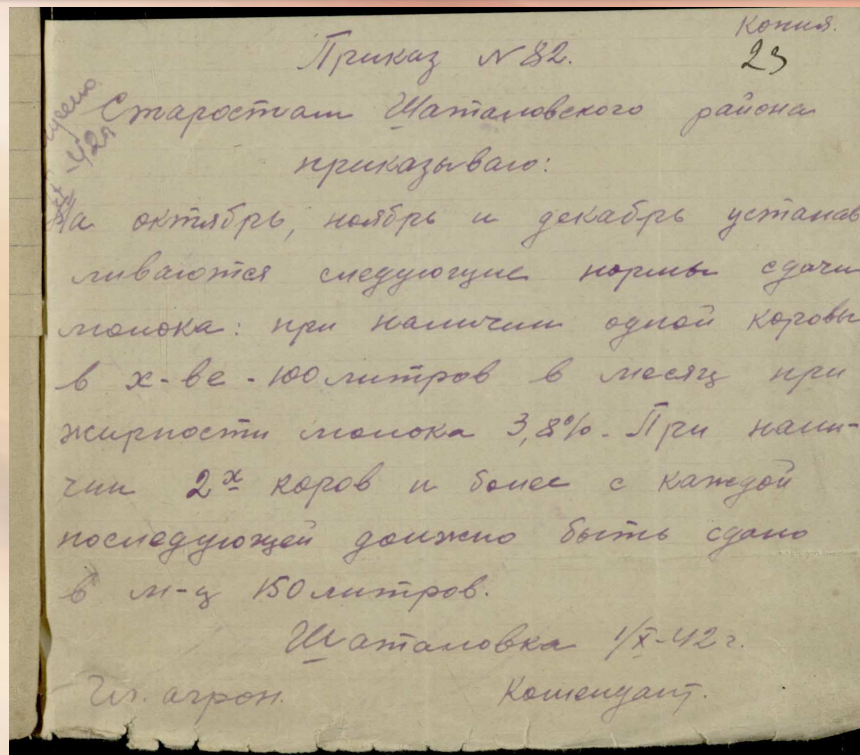 Копия.
Приказ № 82.
23
Старостам Шаталовского района
приказываю:
На октябрь, ноябрь и декабрь устанав
ливаются следующие нормы сдачи
молока: при наличии одной коровы
в х-ве - 100 литров в месяц при
жирности молока 3,8%. При нали-
чии 2х коров и более с каждой
последующей должно быть сдано
в м-ц 150 литров.
Шаталовка 1/X-42 г.
Гл. агрон. Комендант.